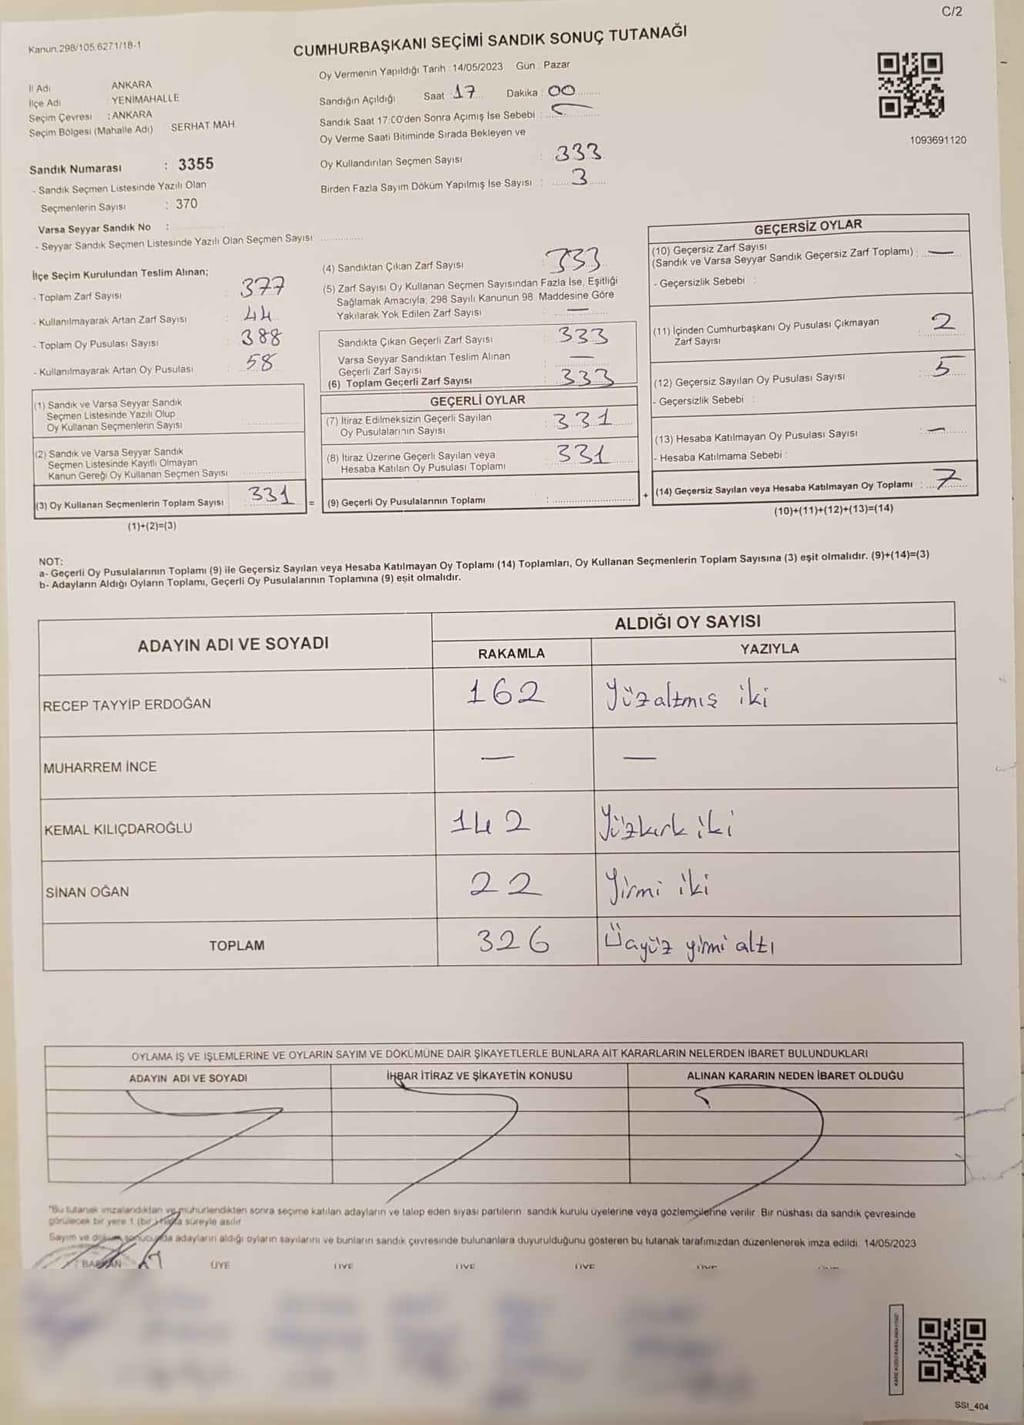 C/2
Kanun.298/105.6271/18-1
CUMHURBAŞKANI SEÇİMİ SANDIK SONUÇ TUTANAĞI
Oy Vermenin Yapıldığı Tarih : 14/05/2023 Gün : Pazar
İl Adı ANKARA
İlçe Adı YENİMAHALLE
Seçim Çevresi : ANKARA
Seçim Bölgesi (Mahalle Adı) SERHAT MAH.
Sandığın Açıldığı Saat 17 Dakika : 00
Sandık Saat 17:00'den Sonra Açımış İse Sebebi :
Oy Verme Saati Bitiminde Sırada Bekleyen ve
Oy Kullandırılan Seçmen Sayısı : 333
Birden Fazla Sayım Döküm Yapılmış İse Sayısı : 3
1093691120
Sandık Numarası : 3355
- Sandık Seçmen Listesinde Yazılı Olan
Seçmenlerin Sayısı : 370
Varsa Seyyar Sandık No :
- Seyyar Sandık Seçmen Listesinde Yazılı Olan Seçmen Sayısı
İlçe Seçim Kurulundan Teslim Alınan;
- Toplam Zarf Sayısı : 377
- Kullanılmayarak Artan Zarf Sayısı : 44
- Toplam Oy Pusulası Sayısı : 388
- Kullanılmayarak Artan Oy Pusulası : 58
(1) Sandık ve Varsa Seyyar Sandık
Seçmen Listesinde Yazılı Olup
Oy Kullanan Seçmenlerin Sayısı :
(2) Sandık ve Varsa Seyyar Sandık
Seçmen Listesinde Kayıtlı Olmayan
Kanun Gereği Oy Kullanan Seçmen Sayısı :
(3) Oy Kullanan Seçmenlerin Toplam Sayısı : 331 =
(1)+(2)=(3)
(4) Sandıktan Çıkan Zarf Sayısı : 333
(5) Zarf Sayısı Oy Kullanan Seçmen Sayısından Fazla İse, Eşitliği
Sağlamak Amacıyla, 298 Sayılı Kanunun 98. Maddesine Göre
Yakılarak Yok Edilen Zarf Sayısı : —
Sandıkta Çıkan Geçerli Zarf Sayısı : 333
Varsa Seyyar Sandıktan Teslim Alınan
Geçerli Zarf Sayısı : —
(6) Toplam Geçerli Zarf Sayısı : 333
GEÇERLİ OYLAR
(7) İtiraz Edilmeksizin Geçerli Sayılan
Oy Pusulalarının Sayısı : 331
(8) İtiraz Üzerine Geçerli Sayılan veya
Hesaba Katılan Oy Pusulası Toplamı : 331
(9) Geçerli Oy Pusulalarının Toplamı : +
GEÇERSİZ OYLAR
(10) Geçersiz Zarf Sayısı
(Sandık ve Varsa Seyyar Sandık Geçersiz Zarf Toplamı) : —
- Geçersizlik Sebebi :
(11) İçinden Cumhurbaşkanı Oy Pusulası Çıkmayan
Zarf Sayısı : 2
(12) Geçersiz Sayılan Oy Pusulası Sayısı : 5
- Geçersizlik Sebebi :
(13) Hesaba Katılmayan Oy Pusulası Sayısı : —
- Hesaba Katılmama Sebebi :
(14) Geçersiz Sayılan veya Hesaba Katılmayan Oy Toplamı : 7
(10)+(11)+(12)+(13)=(14)
NOT:
a- Geçerli Oy Pusulalarının Toplamı (9) ile Geçersiz Sayılan veya Hesaba Katılmayan Oy Toplamı (14) Toplamları, Oy Kullanan Seçmenlerin Toplam Sayısına (3) eşit olmalıdır. (9)+(14)=(3)
b- Adayların Aldığı Oyların Toplamı, Geçerli Oy Pusulalarının Toplamına (9) eşit olmalıdır.
ADAYIN ADI VE SOYADI
ALDIĞI OY SAYISI
RAKAMLA YAZIYLA
RECEP TAYYİP ERDOĞAN 162 Yüzaltmış iki
MUHARREM İNCE — —
KEMAL KILIÇDAROĞLU 142 Yüzkırk iki
SİNAN OĞAN 22 Yirmi iki
TOPLAM 326 Üçyüz yirmi altı
OYLAMA İŞ VE İŞLEMLERİNE VE OYLARIN SAYIM VE DÖKÜMÜNE DAİR ŞİKAYETLERLE BUNLARA AİT KARARLARIN NELERDEN İBARET BULUNDUKLARI
ADAYIN ADI VE SOYADI İHBAR İTİRAZ VE ŞİKAYETİN KONUSU ALINAN KARARIN NEDEN İBARET OLDUĞU
"Bu tutanak imzalandıktan ve mühürlendikten sonra seçime katılan adayların ve talep eden siyasi partilerin sandık kurulu üyelerine veya gözlemçilerine verilir. Bir nüshası da sandık çevresinde
görülecek bir yere 1 (bir) hafta süreyle asılır.
Sayım ve döküm sonucunda adayların aldığı oyların sayılarını ve bunların sandık çevresinde bulunanlara duyurulduğunu gösteren bu tutanak tarafımızdan düzenlenerek imza edildi. 14/05/2023
BAŞKAN ÜYE ÜYE ÜYE ÜYE ÜYE
SSI_404